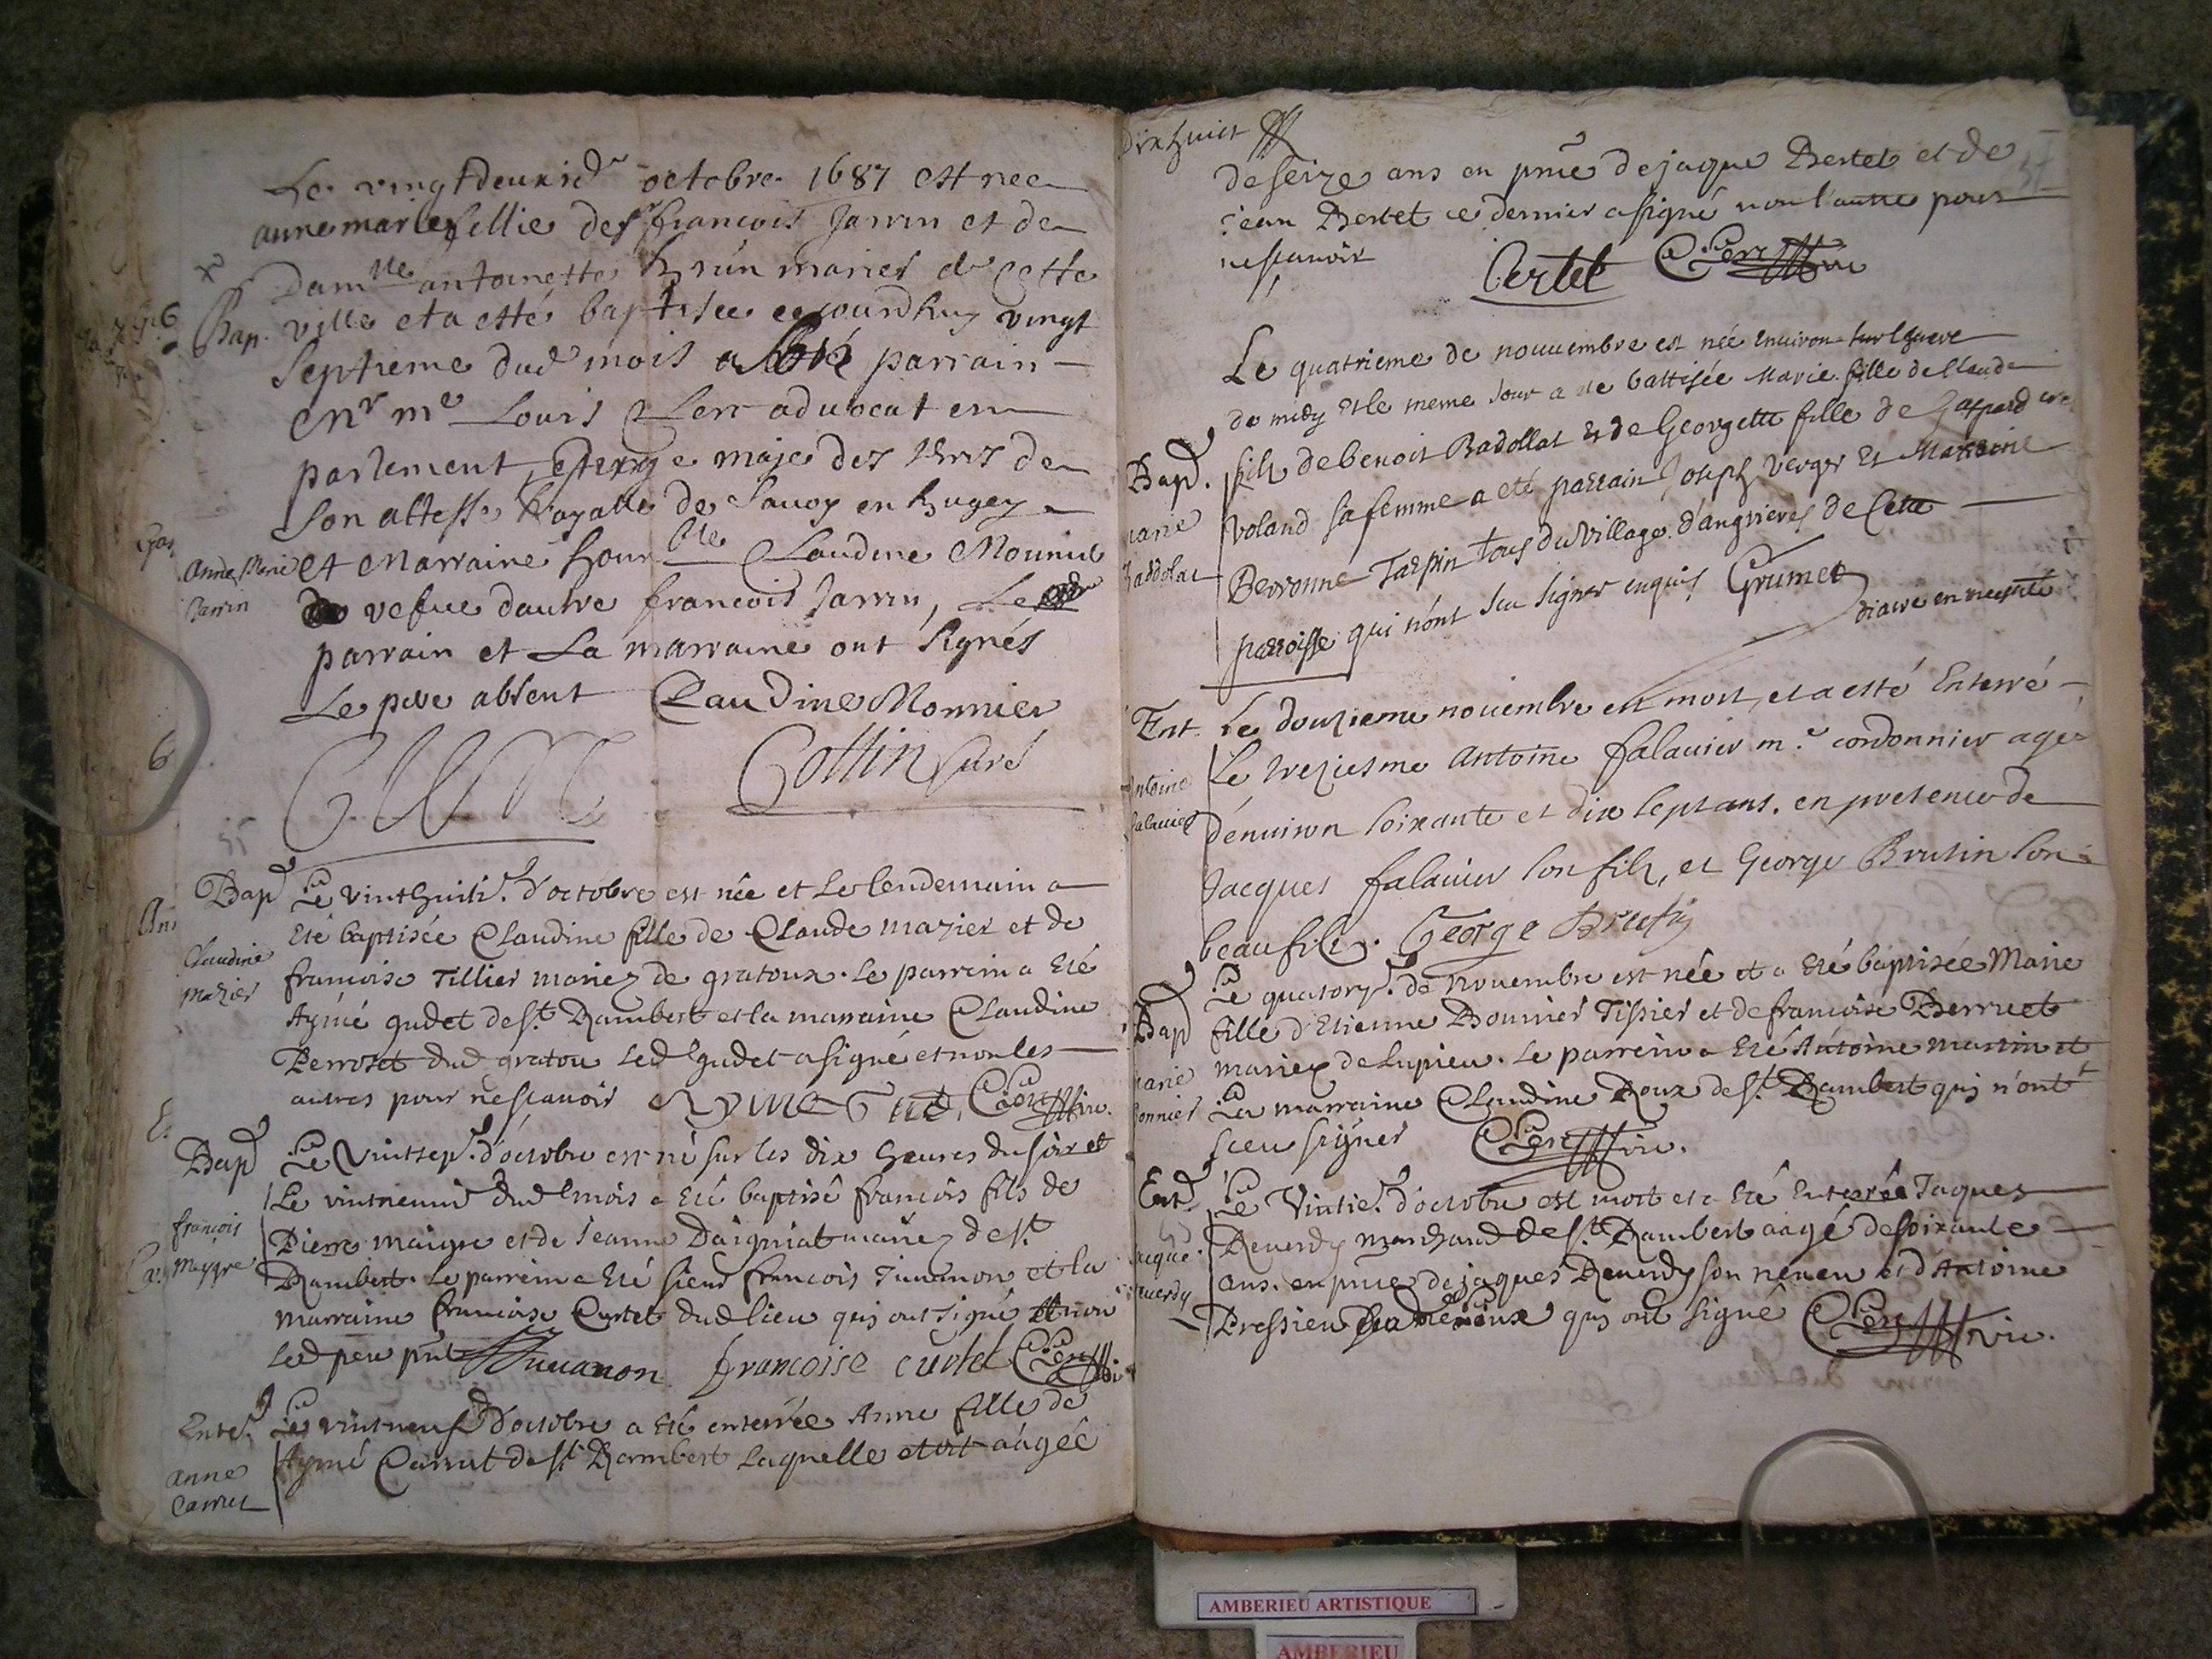 Le vingt deuxie octobre 1687 est nee
anne marie fillie de sr francois Jarrin et de
Damlle antoinette Brun maries de cette
Bap. ville et a esté baptisee cejourdhuy vingt
septieme dud mois a esté parrain
Mr me Louis Clerc advocat en
parlement, et juge maje des terres de
son altesse Royalle de Savoy en bugey
Anne Marie Jarrin
et Marraine honble Claudine Mounier
vefue dautre francois Jarrin, Le
parrain et La marraine ont signés
Le pere absent Claudine Monnier
Cottin Curé
Bapd Le vinthuiti. d'octobre est née et le lendemain a
Eté baptisée Claudine fille de Claude mazier et de
Claudine mazier
francoise Tillier mariez de gratoux. Le parrein a Eté
Aymé gudet de St. Rambert et la marraine Claudine
Perroset dud gratou led gudet a signé et non les
autres pour ne scavoir Ayme Gudet
Bapd Le Vintsep. d'octobre est né sur les dix heures du soir et
Le vintneuvi dud mois a Eté baptisé francois fils de
françois Maygre
Pierre maigre et de Jeanne Daigniat mariez de St.
Rambert. Le parrein a Eté sieur francois Juuanon et la
marraine francoise Curtet dud lieu qui ont signé et non
led pere pnt Juuanon francoise curtet
Ente. Le vintneuf d'octobre a Eté enterrée Anne fille de
Aymé Carrut de St Rambert laquelle etoit aâgée
anne Carrut
Dixhuict
de seize ans en pnce de jaque Bertet et de
jean Bertet ce dernier a signé non l'autre pour
ne scauoir Bertet
Le quatrieme de nouuembre est née enuiron sur l'heure
de midy et le meme jour a ete battisée Marie fille de Claude
Bapd. fils de benoit Badollat et de Georgette fille de Gaspard
Voland sa femme a eté parrain Joseph Verger Et Marreine
Pevronne Tarpin tous du village d'angrieres de Cette
parroisse qui n'ont sceu signer enquis Grumet
diacre en necessité
Ent. Le douzieme novembre est mort, et a esté Enterré
Le treziesme Antoine falauier m.e cordonnier agé
d'enuiron soixante et dix sept ans. en presence de
Jacques falauier son filz, et George Brusin son
beaufilz. George Brusin
Bapd Le quatorz. de Novembre est née et a Eté baptisée Marie
fille d'Etienne Bonnier Tissier et de francoise Berruet
mariez de Lupieu. Le parrein a Eté Antoine martin et
La marraine Claudine Roux de St. Rambert qui n'ont
sceu signer
Entd. Le Vintie. d'octobre est mort et a Eté Enterrée Jaques
Reuerdy marchand de St. Rambert aagé de soixante
ans. en pnce de jaques Reuerdy son neueu et d'Antoine
Pressieu qui ont signé
AMBERIEU ARTISTIQUE
AMBERIEU